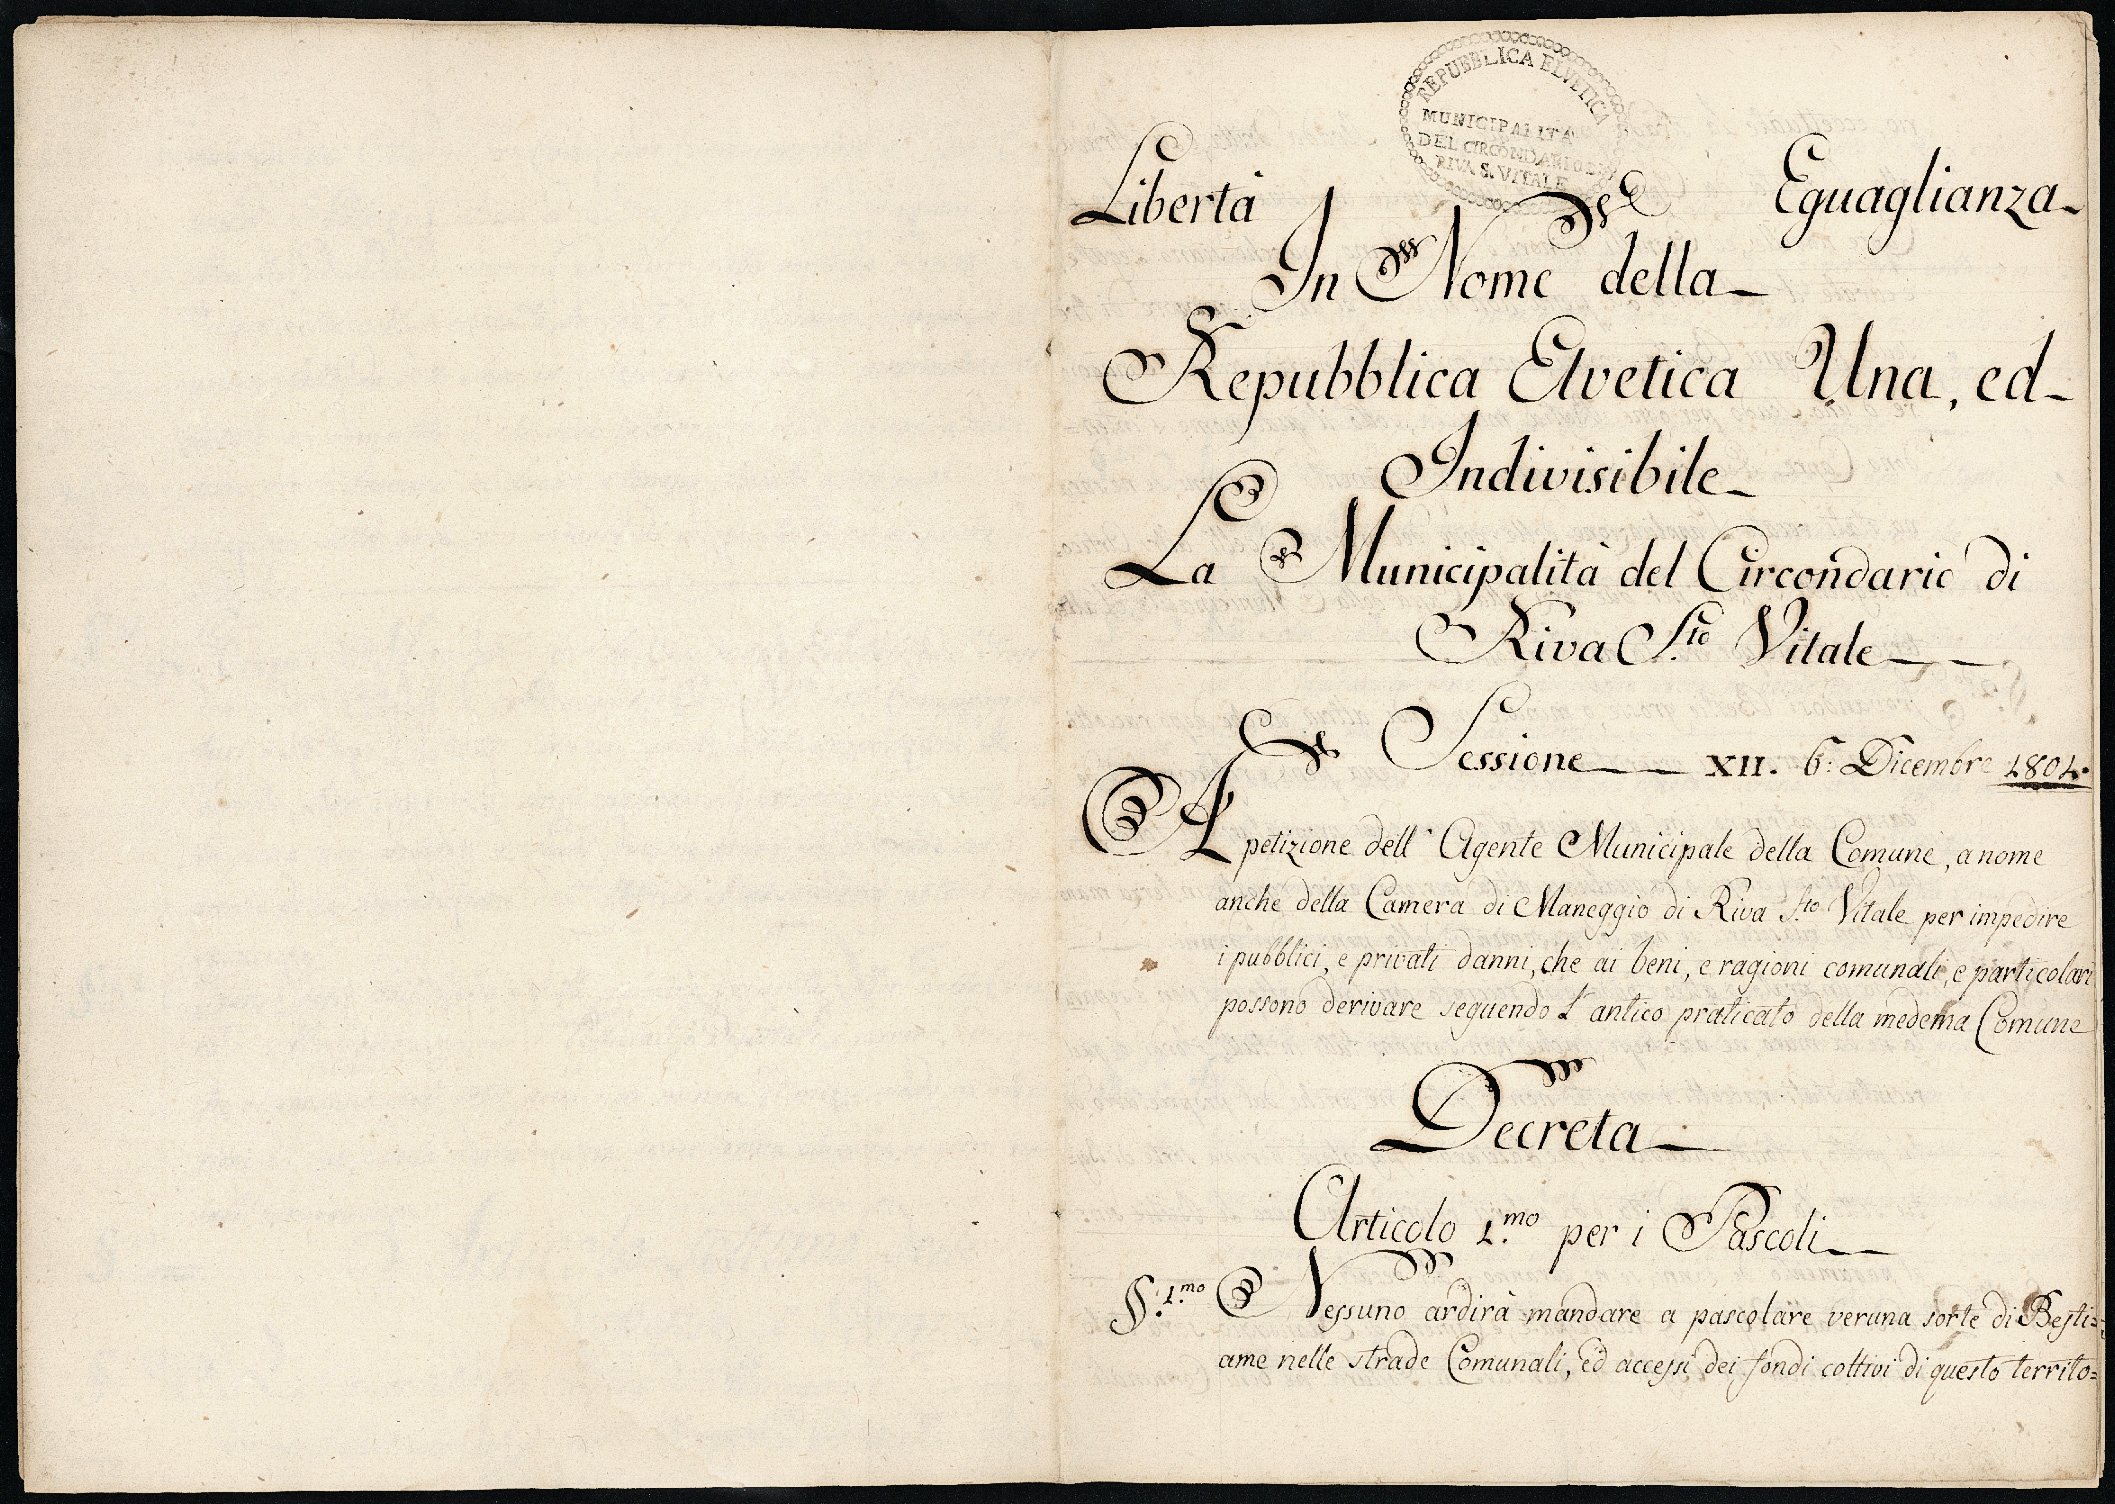 REPUBBLICA ELVETICA
MUNICIPALITA
DEL CIRCONDARIO DI
RIVA S. VITALE
Libertà Eguaglianza
In Nome della
Repubblica Elvetica Una, ed
Indivisibile
La Municipalità del Circondario di
Riva S.to Vitale
Sessione XII. 6: Dicembre 1801.
A petizione dell' Agente Municipale della Comune, a nome
anche della Camera di Maneggio di Riva S.to Vitale per impedire
i pubblici, e privati danni, che ai beni, e ragioni comunali, e particolari
possono derivare seguendo l' antico praticato della medema Comune
Decreta
Articolo 1.mo per i Pascoli
§.1.mo Nessuno ardirà mandare a pascolare veruna sorte di Besti=
ame nelle strade Comunali, ed accessi dei fondi coltivi di questo territo=